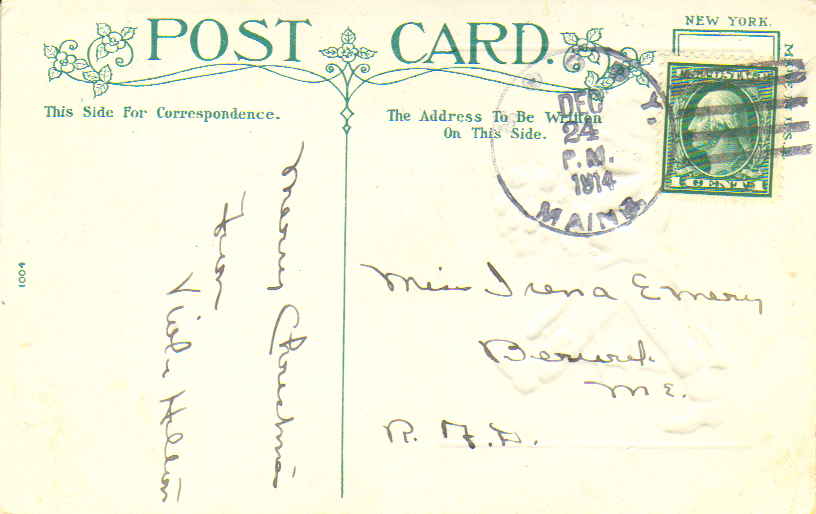 POST CARD.
NEW YORK.
MADE IN U.S.A.
This Side For Correspondence.
The Address To Be Written
On This Side.
DEC
24
P.M.
1914
MAINE
1004
Merry Christmas
From
Miss Irena Emery
Berwick
Me.
R. F. D.